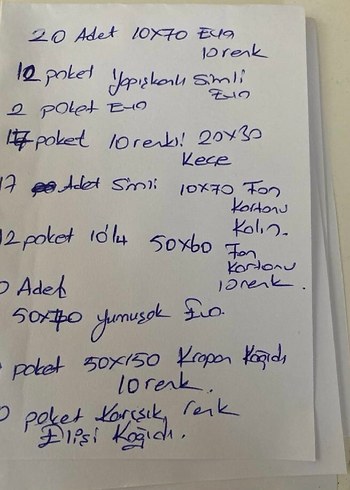 20 Adet 10x70 Eva
10 renk
12 poket Yapışkanlı Simli
Eva
2 poket Eva
17 poket 10 renkli 20x30
Kece
17 Adet Simli 10x70 Fon
Kartonu
Kalın.
12 poket 10'lu 50x60 Fon
Kartonu
0 Adet 10 renk.
50x70 yumuşak Eva.
poket 50x150 Krapon Kağıdı
10 renk.
0 poket Karışık renk
Elişi Kağıdı.